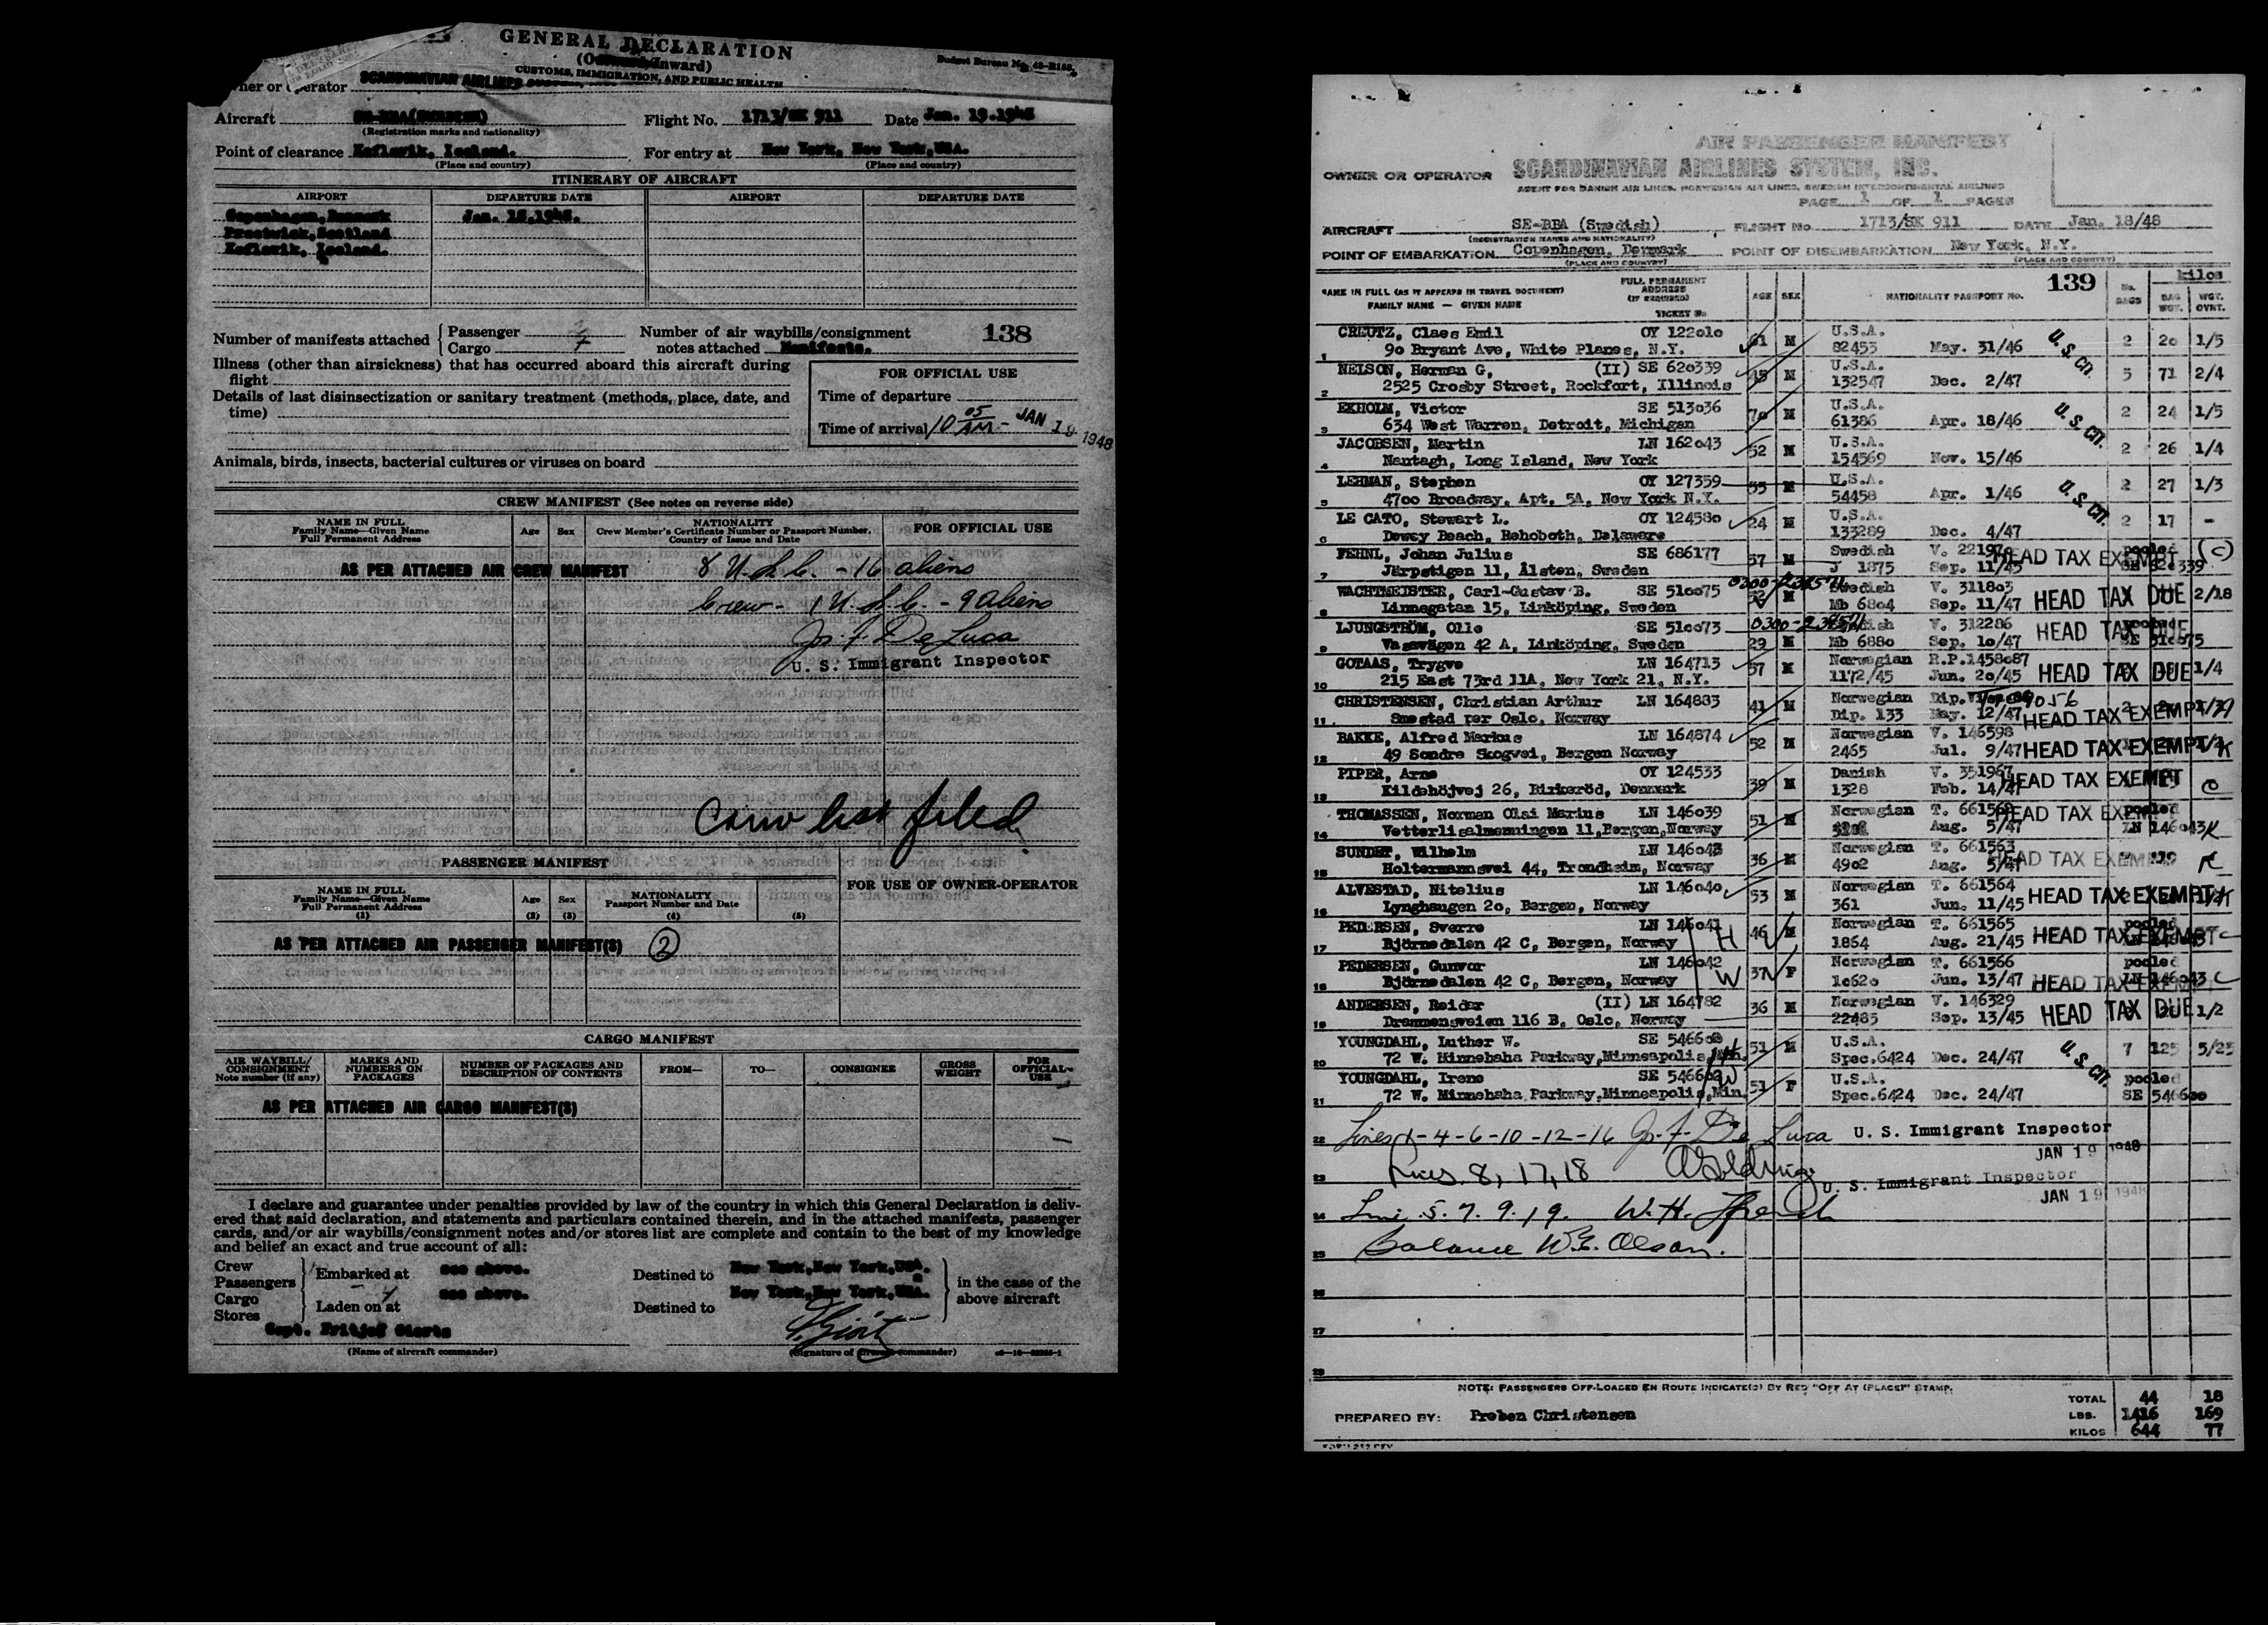 GENERAL DECLARATION
(Outward/Inward)
CUSTOMS, IMMIGRATION, AND PUBLIC HEALTH
Budget Bureau No.
SCANDINAVIAN AIRLINES
Aircraft
(Registration marks and nationality)
Flight No. 1713/SK 911 Date Jan. 19.1948
Point of clearance Keflavik, Iceland.
(Place and country)
For entry at New York, New York,USA.
(Place and country)
ITINERARY OF AIRCRAFT
AIRPORT DEPARTURE DATE AIRPORT DEPARTURE DATE
Copenhagen,Denmark Jan. 18.1948.
Prestwick,Scotland
Keflavik, Iceland.
Number of manifests attached
Passenger
Cargo 7
Number of air waybills/consignment
notes attached Manifests.
138
Illness (other than airsickness) that has occurred aboard this aircraft during
flight
Details of last disinsectization or sanitary treatment (methods, place, date, and
time)
FOR OFFICIAL USE
Time of departure
Time of arrival 10 05 AM- JAN 19 1948
Animals, birds, insects, bacterial cultures or viruses on board
CREW MANIFEST (See notes on reverse side)
NAME IN FULL
Family Name—Given Name
Full Permanent Address
Age Sex
NATIONALITY
Crew Member's Certificate Number or Passport Number,
Country of Issue and Date
FOR OFFICIAL USE
AS PER ATTACHED AIR CREW MANIFEST
8 U.S.C. - 16 aliens
Crew - 1 U.S.C. - 9 Aliens
Jos. F. De Luca
U. S. Immigrant Inspector
Crew list filed
PASSENGER MANIFEST
NAME IN FULL
Family Name—Given Name
Full Permanent Address
(1)
Age
(2)
Sex
(3)
NATIONALITY
Passport Number and Date
(4)
(5)
FOR USE OF OWNER-OPERATOR
AS PER ATTACHED AIR PASSENGER MANIFEST(S) 2
CARGO MANIFEST
AIR WAYBILL/
CONSIGNMENT
Note number (if any)
MARKS AND
NUMBERS ON
PACKAGES
NUMBER OF PACKAGES AND
DESCRIPTION OF CONTENTS
FROM— TO— CONSIGNEE
GROSS
WEIGHT
FOR
OFFICIAL
USE
AS PER ATTACHED AIR CARGO MANIFEST(S)
I declare and guarantee under penalties provided by law of the country in which this General Declaration is deliv-
ered that said declaration, and statements and particulars contained therein, and in the attached manifests, passenger
cards, and/or air waybills/consignment notes and/or stores list are complete and contain to the best of my knowledge
and belief an exact and true account of all:
Crew
Passengers
Cargo
Stores
Embarked at see above.
Laden on at see above.
Destined to New York,New York,USA.
Destined to New York,New York,USA.
in the case of the
above aircraft
Capt. Fritjof
(Name of aircraft commander)
(Signature of aircraft commander)
AIR PASSENGER MANIFEST
OWNER OR OPERATOR SCANDINAVIAN AIRLINES SYSTEM, INC.
AGENT FOR DANISH AIR LINES, NORWEGIAN AIR LINES, SWEDISH INTERCONTINENTAL AIRLINES
PAGE 1 OF 1 PAGES
AIRCRAFT SE-BBA (Swedish) FLIGHT No 1713/SK 911 DATE Jan. 18/48
(REGISTRATION MARKS AND NATIONALITY)
POINT OF EMBARKATION Copenhagen, Denmark POINT OF DISEMBARKATION New York, N.Y.
(PLACE AND COUNTRY) (PLACE AND COUNTRY)
NAME IN FULL (AS IT APPEARS IN TRAVEL DOCUMENT)
FAMILY NAME — GIVEN NAME
FULL PERMANENT
ADDRESS
(IF REQUIRED)
TICKET No
AGE SEX NATIONALITY PASSPORT NO. 139 No. BAGS kilos BAG WGT. WGT. OVNT.
CREUTZ, Claes Emil OY 122010 61 M U.S.A. 2 20 1/5
1 90 Bryant Ave, White Planes, N.Y. 82453 May. 31/46
U.S. CIT.
NELSON, Herman G, (II) SE 620339 45 M U.S.A. 5 71 2/4
2 2525 Crosby Street, Rockfort, Illinois 132547 Dec. 2/47
EKHOLM, Victor SE 513036 70 M U.S.A. 2 24 1/5
3 634 West Warren, Detroit, Michigan 61386 Apr. 18/46
U.S. CIT.
JACOBSEN, Martin LN 162043 52 M U.S.A. 2 26 1/4
4 Nantagh, Long Island, New York 154569 Nov. 15/46
LEHMAN, Stephen OY 127359 55 M U.S.A. 2 27 1/3
5 4700 Broadway, Apt. 5A, New York N.Y. 54458 Apr. 1/46
U.S. CIT.
LE CATO, Stewart L. OY 124580 24 M U.S.A. 2 17 -
6 Dewey Beach, Rehoboth, Delaware 133289 Dec. 4/47
FEHNL, Johan Julius SE 686177 57 M Swedish V. 22197 HEAD TAX EXEMPT pooled (C)
7 Järpstigen 11, Ålsten, Sweden J 1875 Sep. 11/45
WACHTMEISTER, Carl-Gustav B. SE 510075 M Swedish V. 311803 HEAD TAX DUE 2/18
8 Linnegatan 15, Linköping, Sweden Mb 6804 Sep. 11/47
LJUNGSTRÖM, Olle SE 510073 29 M V. 312286 HEAD TAX DUE pooled
9 Vasavägen 42 A, Linköping, Sweden Mb 6880 Sep. 10/47 SE 510075
GOTAAS, Trygve LN 164713 57 M Norwegian R.P.1458087 HEAD TAX DUE 1/4
10 215 East 73rd 11A, New York 21, N.Y. 1172/45 Jun. 20/45
CHRISTENSEN, Christian Arthur LN 164883 41 M Norwegian Dip. HEAD TAX EXEMPT
11 Smestad per Oslo, Norway Dip. 133 May. 12/47
BAKKE, Alfred Markus LN 164874 52 M Norwegian V. 146598 HEAD TAX EXEMPT K
12 49 Sondre Skogvei, Bergen Norway 2465 Jul. 9/47
PIPER, Arne OY 124533 39 M Danish V. 351967 HEAD TAX EXEMPT C
13 Kildehöjvej 26, Birkeröd, Denmark 1328 Feb. 14/47
THOMASSEN, Norman Olai Marius LN 146039 51 M Norwegian T. 661562 HEAD TAX EXEMPT pooled
14 Vetterlisalmenningen 11,Bergen,Norway Aug. 5/47 LN 146043 K
SUNDET, Wilhelm LN 146043 36 M Norwegian T. 661563 HEAD TAX EXEMPT K
15 Holtermannsvei 44, Trondheim, Norway 4902 Aug. 5/47
ALVESTAD, Nitelius LN 146040 53 M Norwegian T. 661564 HEAD TAX EXEMPT K
16 Lynghaugen 20, Bergen, Norway 361 Jun. 11/45
PEDERSEN, Sverre LN 146041 H 46 M Norwegian T. 661565 HEAD TAX EXEMPT pooled C
17 Björnedalen 42 C, Bergen, Norway 1864 Aug. 21/45
PEDERSEN, Gunvor LN 146042 W 37 F Norwegian T. 661566 HEAD TAX EXEMPT pooled
18 Björnedalen 42 C, Bergen, Norway 10620 Jun. 13/47 LN 146043 C
ANDERSEN, Reidar (II) LN 164782 36 M Norwegian V. 146329 HEAD TAX DUE 1/2
19 Drammensveien 116 B, Oslo, Norway 22485 Sep. 13/45
YOUNGDAHL, Luther W. SE 546600 H 51 M U.S.A. 7 125 5/25
20 72 W. Minnehaha Parkway,Minneapolis,Min. Spec.6424 Dec. 24/47
U.S. CIT.
YOUNGDAHL, Irene SE 546602 W 51 F U.S.A. pooled
21 72 W. Minnehaha Parkway,Minneapolis,Min. Spec.6424 Dec. 24/47 SE 546600
22 Lines 1-4-6-10-12-16 Jos. F. De Luca U. S. Immigrant Inspector
JAN 19 1948
23 Lines 8, 17, 18
U. S. Immigrant Inspector
JAN 19 1948
24 Line 5. 7. 9. 19. W. H. French
25 Balance W.E. Olson.
26
27
28
NOTE: PASSENGERS OFF-LOADED EN ROUTE INDICATE(D) BY RED "OFF AT (PLACE)" STAMP.
TOTAL 44 18
PREPARED BY: Preben Christensen
LBS. 1416 169
KILOS 644 77